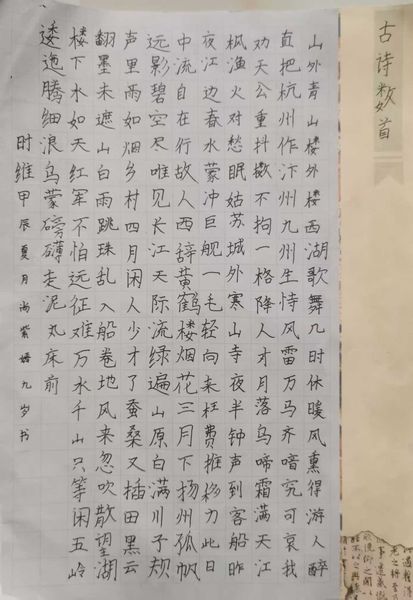 古诗数首
山外青山楼外楼西湖歌舞几时休暖风熏得游人醉
直把杭州作汴州九州生恃风雷万马齐喑究可哀我
劝天公重抖擞不拘一格降人才月落乌啼霜满天江
枫渔火对愁眠姑苏城外寒山寺夜半钟声到客船昨
夜江边春水蒙冲巨舰一毛轻向来枉费推移力此日
中流自在行故人西辞黄鹤楼烟花三月下扬州孤帆
远影碧空尽唯见长江天际流绿遍山原白满川子规
声里雨如烟乡村四月闲人少才了蚕桑又插田黑云
翻墨未遮山白雨跳珠乱入船卷地风来忽吹散望湖
楼下水如天红军不怕远征难万水千山只等闲五岭
逶迤腾细浪乌蒙磅礴走泥丸床前
时维甲辰夏月尚紫九岁书